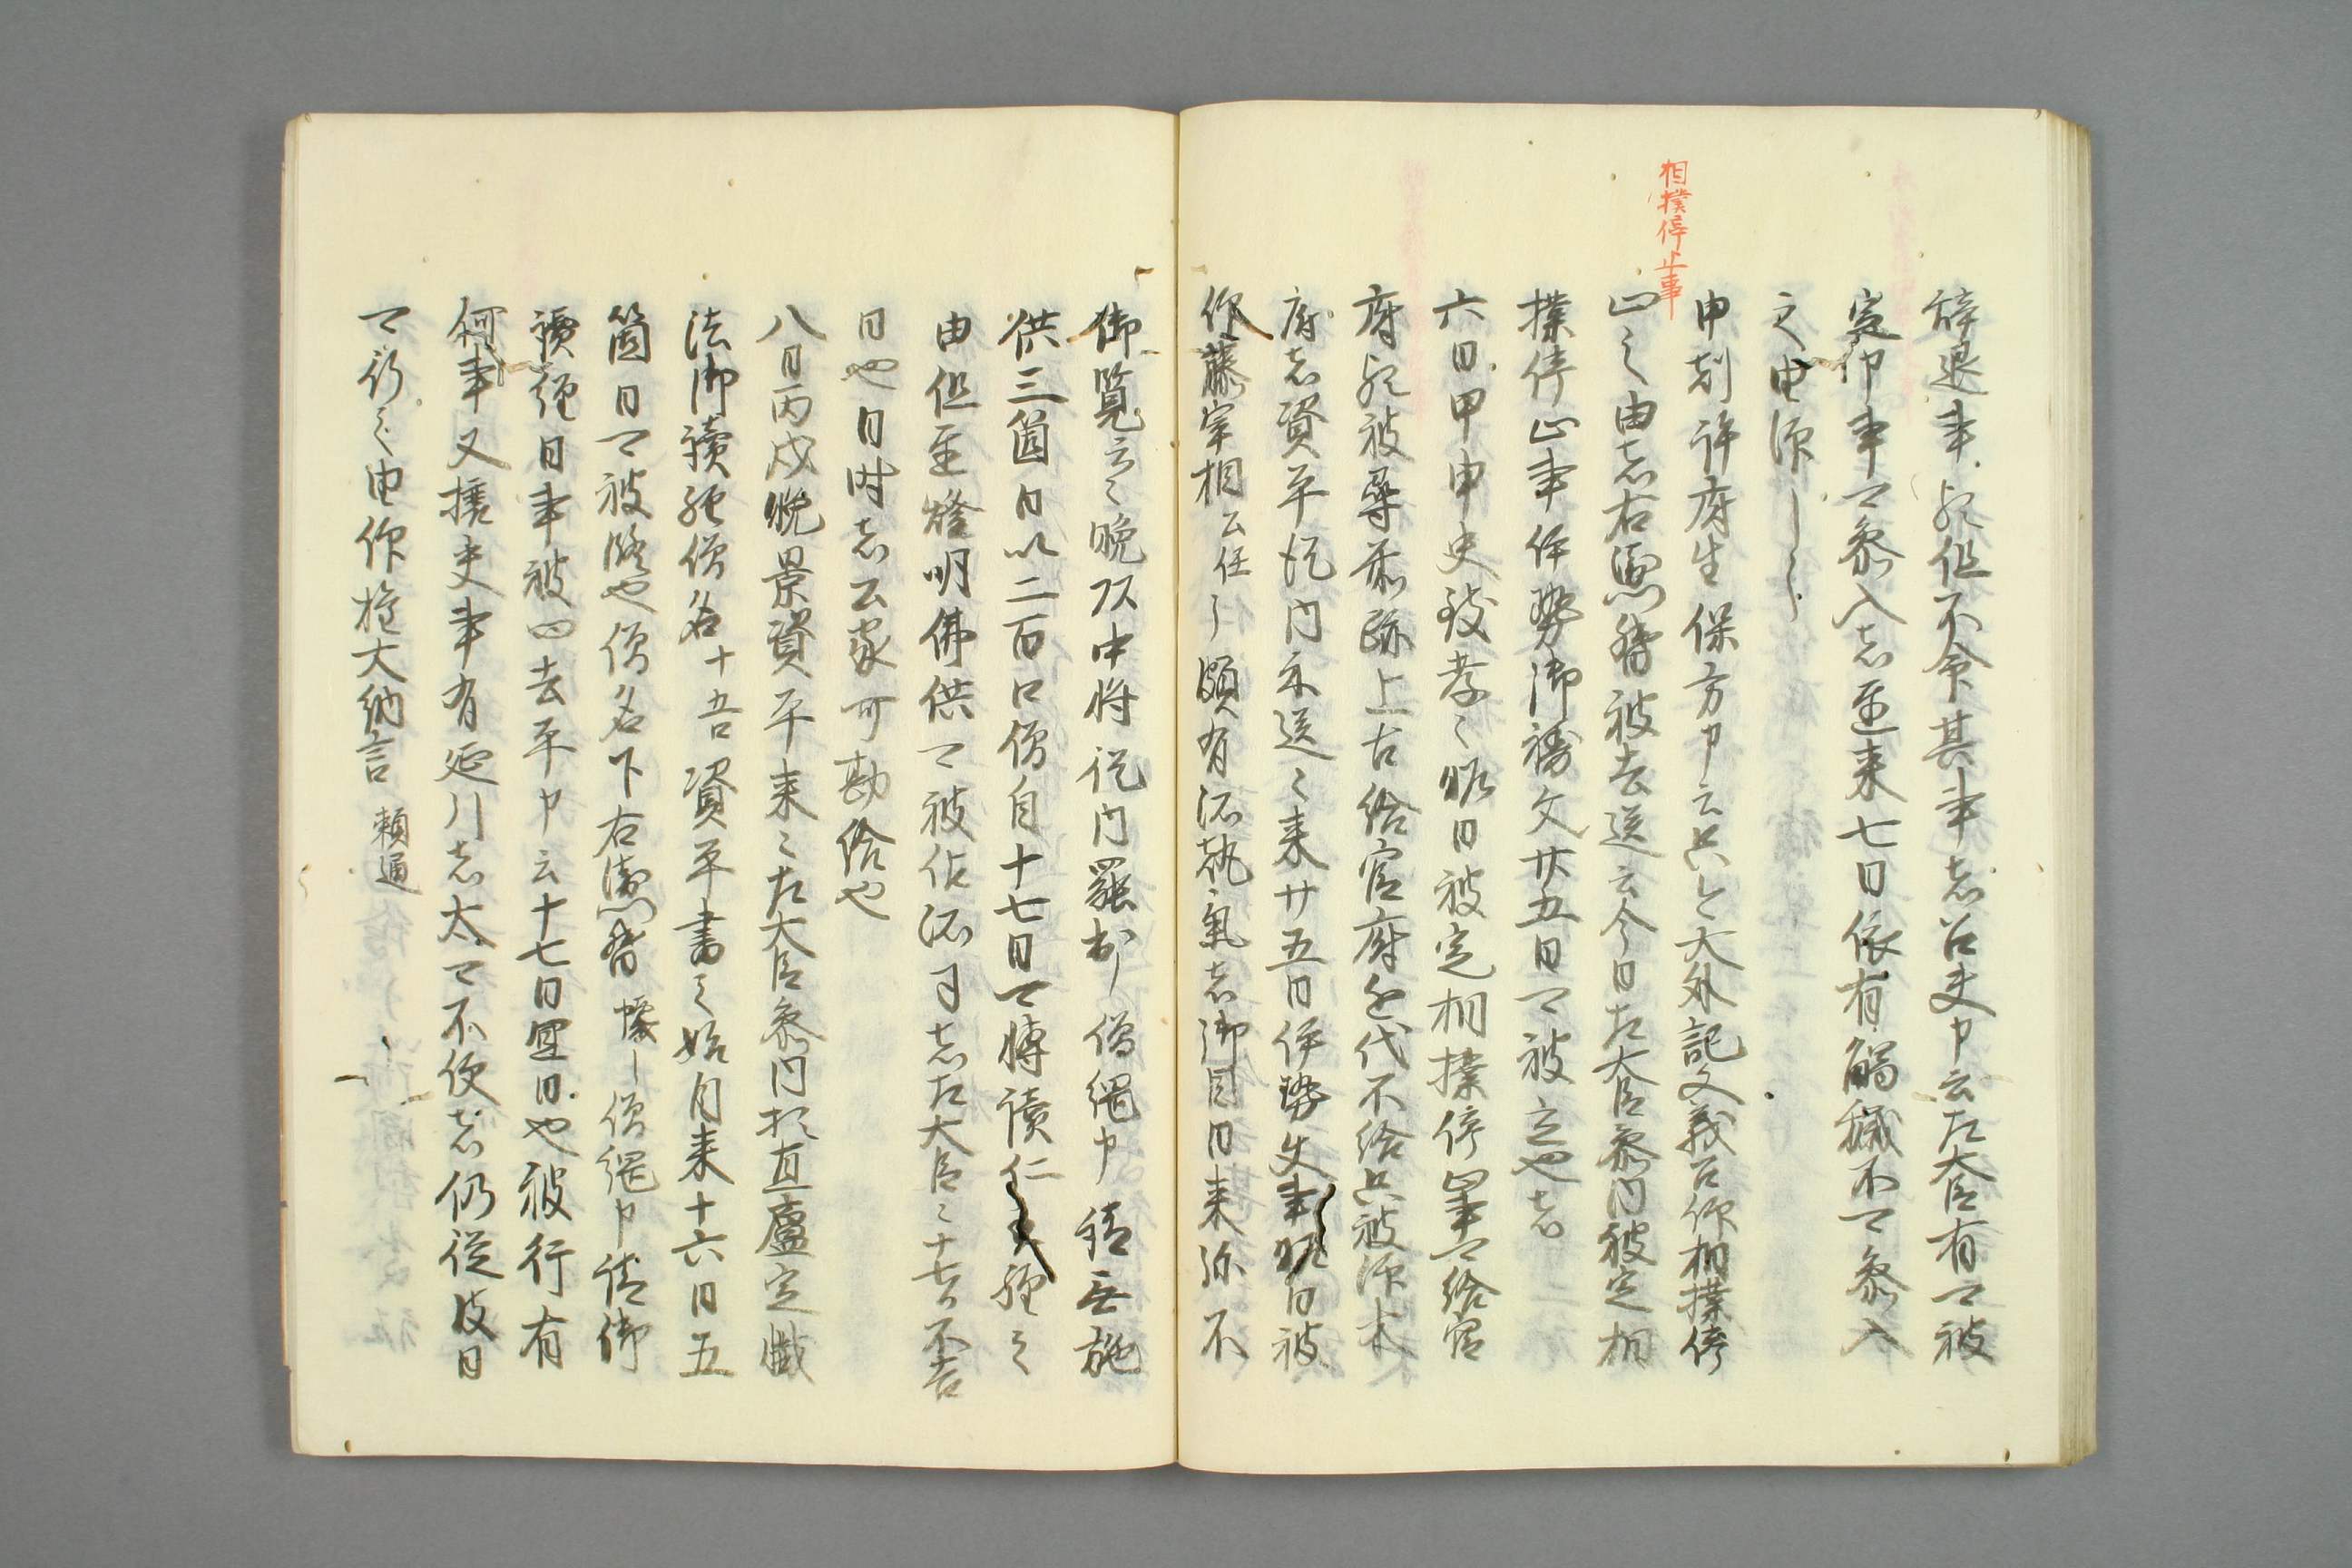 相撲停止事
辞退事歟但不令其事者召史申云左大臣有可被
定申事可参入者至来七日依有觸穢不可参入
之由
申剋許府生保方申云只今大外記文義召仰相撲停
止之由者右兵衛督被告送云今日左大臣参内被定相
撲停止事伊勢御禱文廿五日可被立也者
六日甲申史致孝々昨日被定相撲停止事可給官
府歟被尋前跡上古給官府近代不給只被
府者資平従内示送々来廿五日伊勢使事昨日被
仰藤宰相公任〻頗有済執氣者御目日来弥不
御覧云々晩頭中将従内罷出僧綱申請無施
供三箇日以二百口僧自十七日可轉讀仁王經之
由但至燈明佛供可被仰所司者左大臣々十七日不吉
日也日時者公家可勘給也
八日丙戌晩景資平来々左大臣参内於直廬定懺
法御讀經僧名十五口資平書之始自来十六日五
箇日可被修也僧名下右兵衛督懐〻僧綱申請御
讀經日事被問吉平申云十七日宜日也被行有
何事又擇吏事有延引者太可不便者仍従彼日
可行之由仰権大納言頼通